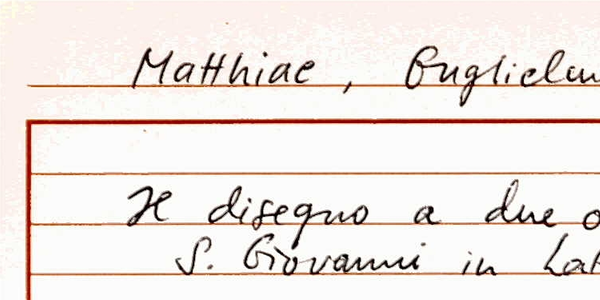 Matthiae, Guglielm
Il disegno a due o
S. Giovanni in Lat